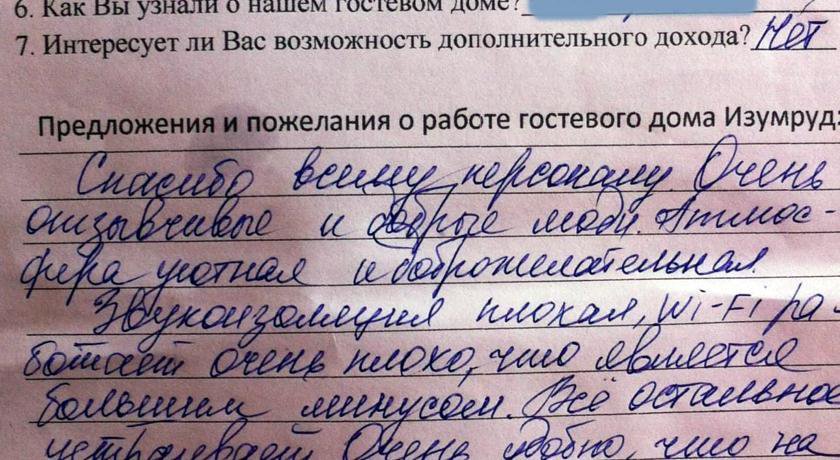 6. Как Вы узнали о нашем гостевом доме?
7. Интересует ли Вас возможность дополнительного дохода? Нет
Предложения и пожелания о работе гостевого дома Изумруд:
Спасибо всему персоналу. Очень
отзывчивые и добрые люди. Атмос-
фера уютная и доброжелательная.
Звукоизоляция плохая, Wi-Fi ра-
ботает очень плохо, что является
большим минусом. Всё остальное
устраивает. Очень удобно, что на